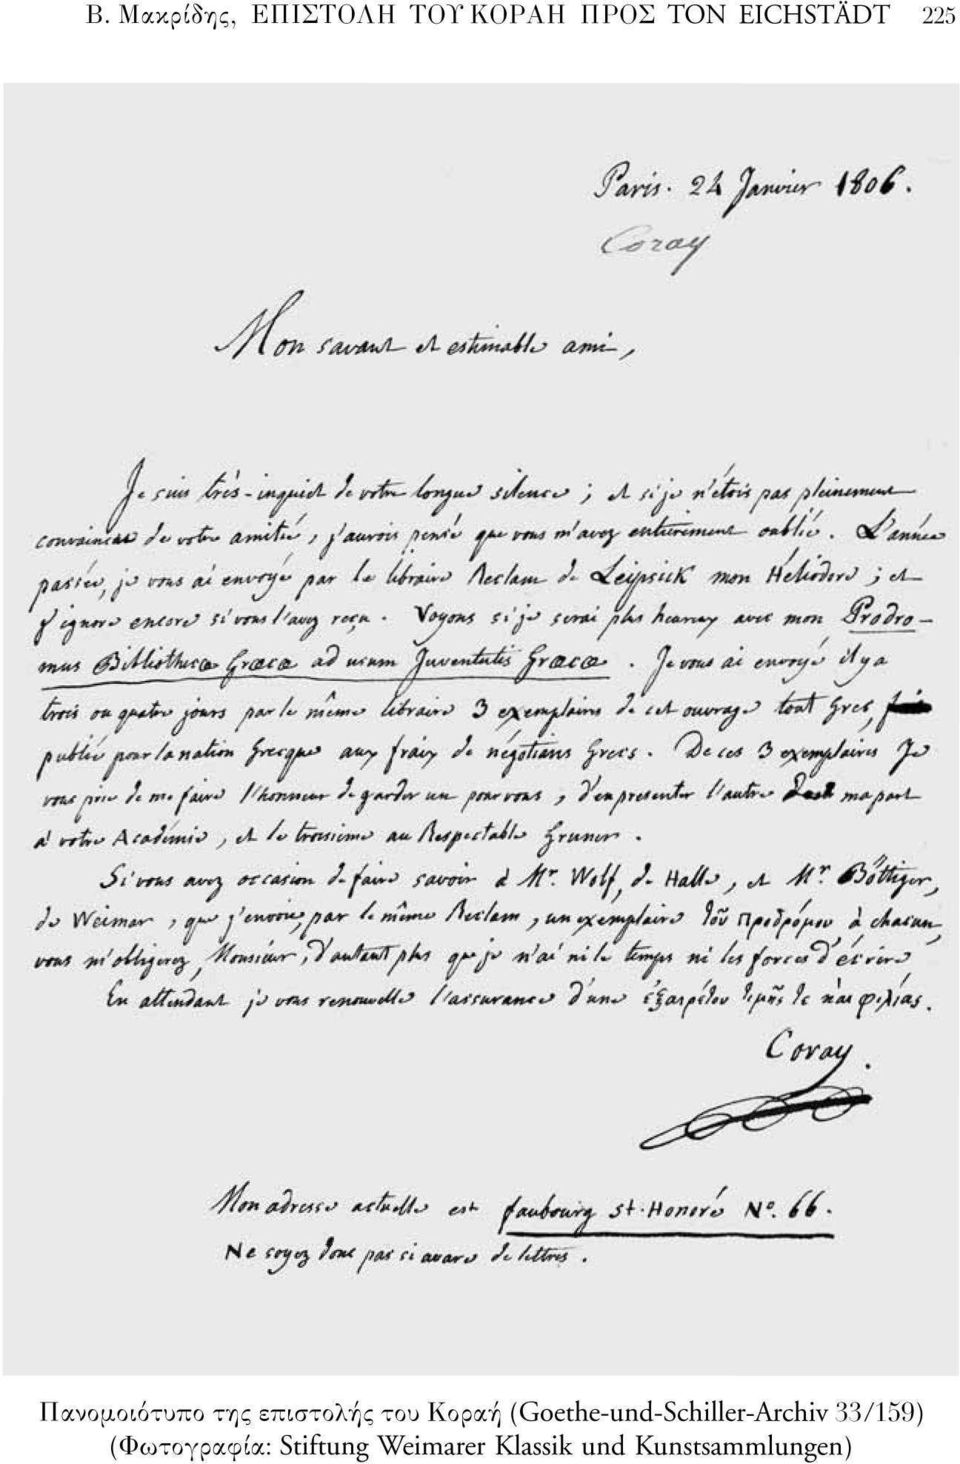 Β. Μακρίδης, ΕΠΙΣΤΟΛΗ ΤΟΥ ΚΟΡΑΗ ΠΡΟΣ ΤΟΝ EICHSTÄDT 225
Paris. 24 Janvier 1806.
Coray
Mon savant et estimable ami,
Je suis très-inquiet de votre longue silence ; et si je n'étois pas pleinement
convaincu de votre amitié, j'aurois pensé que vous m'avez entièrement oublié. L'année
passée, je vous ai envoyé par le libraire Reclam de Leipsick mon Heliodore ; et
j'ignore encore si vous l'avez reçu. Voyons si je serai plus heureux avec mon Prodro-
mus Bibliothecæ Græcæ ad usum Juventutis Græcæ. Je vous ai envoyé il y a
trois ou quatre jours par le même libraire 3 exemplaires de cet ouvrage tout Grec,
publié pour la nation Grecque aux fraix de négotians Grecs. De ces 3 exemplaires Je
vous prie de me faire l'honneur de garder un pour vous, d'en presenter l'autre de ma part
à votre Académie, et le troisieme au Respectable Gruner.
Si vous avez occasion de faire savoir à Mr. Wolf, de Halle, et Mr. Böttiger,
de Weimar, que j'envoie, par le même Reclam, un exemplaire τοῦ Προδρόμου à chacun,
vous m'obligerez, Monsieur, d'autant plus que je n'ai ni le temps ni les forces d'écrire
En attendant je vous renouvelle l'assurance d'une ἐξαιρέτου τιμῆς τε και φιλίας.
Coray.
Mon adresse actuelle est faubourg St-Honoré No. 66.
Ne soyez donc pas si avare de lettres.
Πανομοιότυπο της επιστολής του Κοραή (Goethe-und-Schiller-Archiv 33/159)
(Φωτογραφία: Stiftung Weimarer Klassik und Kunstsammlungen)